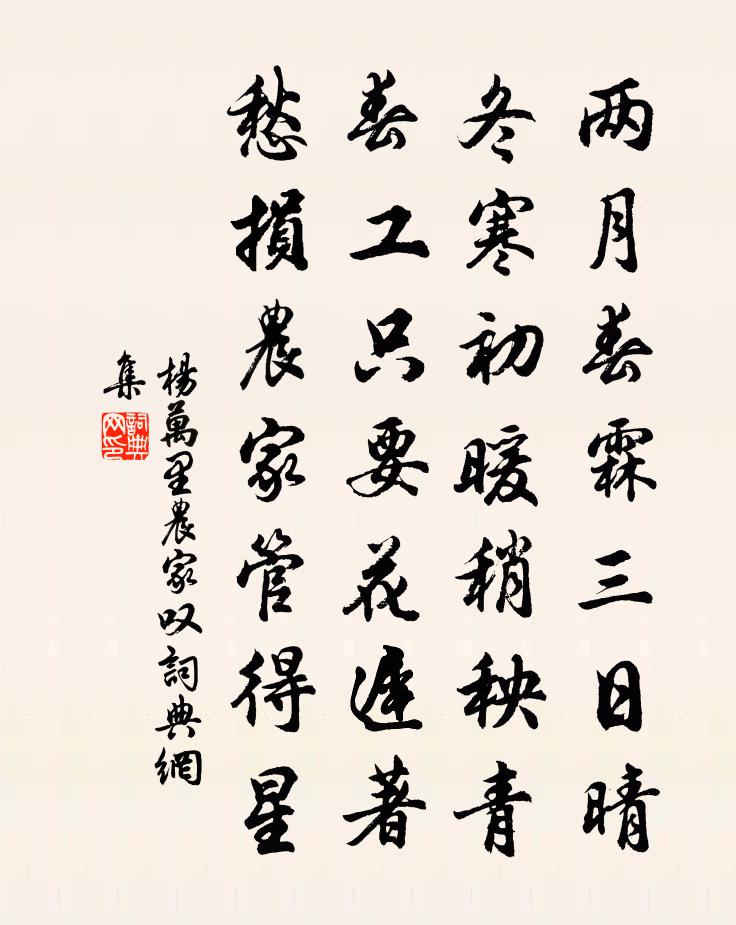 两月春霖三日晴
冬寒初暖稍秧青
春工只要花遲著
愁損農家管得星
楊萬里農家叹詞典網
集
詞典
网印